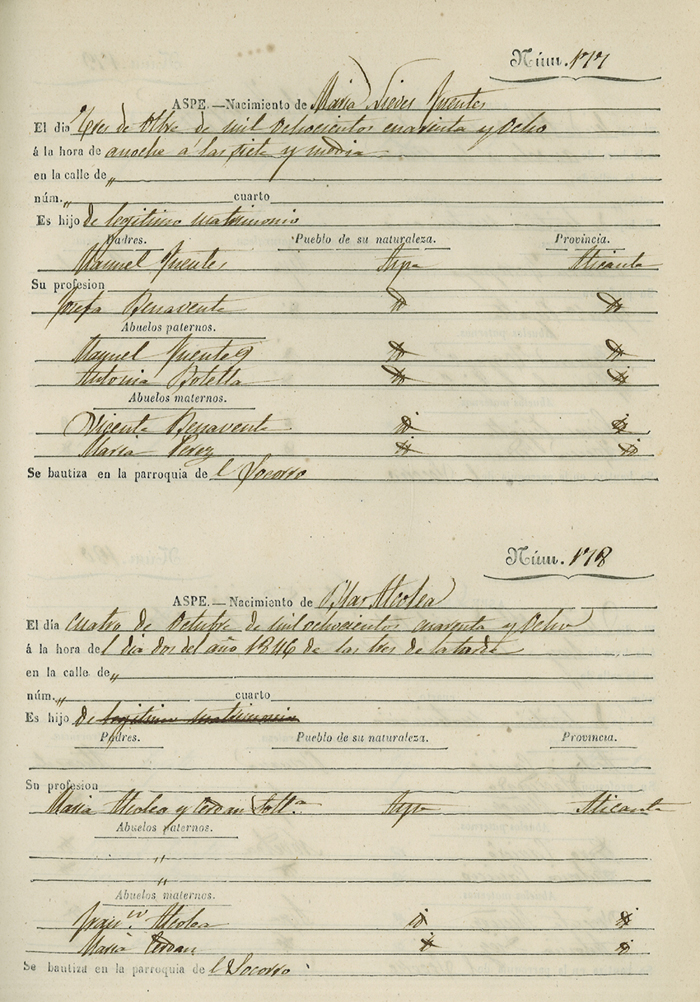 Núm. 177
ASPE.—Nacimiento de Maria Nieves Fuentes
El dia Tres de 8tbre de mil ochocientos cuarenta y ocho
á la hora de anoche a las siete y media
en la calle de „
núm. „ cuarto
Es hijo de legitimo matrimonio
Padres. Pueblo de su naturaleza. Provincia.
Manuel Fuentes Aspe Alicante
Su profesion
Josefa Benavente id id
Abuelos paternos.
Manuel Fuentes id id
Antonia Botella id id
Abuelos maternos.
Vicente Benavente id id
Maria Perez id id
Se bautiza en la parroquia de l Socorro
Núm. 178
ASPE.—Nacimiento de Pilar Alcolea
El día cuatro de Octubre de mil ochocientos cuarenta y ocho
á la hora del dia dos del año 1846 de las tres de la tarde
en la calle de „
núm. „ cuarto
Es hijo de legitimo matrimonio
Padres. Pueblo de su naturaleza. Provincia.
Su profesion
Maria Alcolea y Cerdan Solt.ª Aspe Alicante
Abuelos paternos.
„
„
Abuelos maternos.
Fran.co Alcolea id id
Maria Cerdan id id
Se bautiza en la parroquia de l Socorro